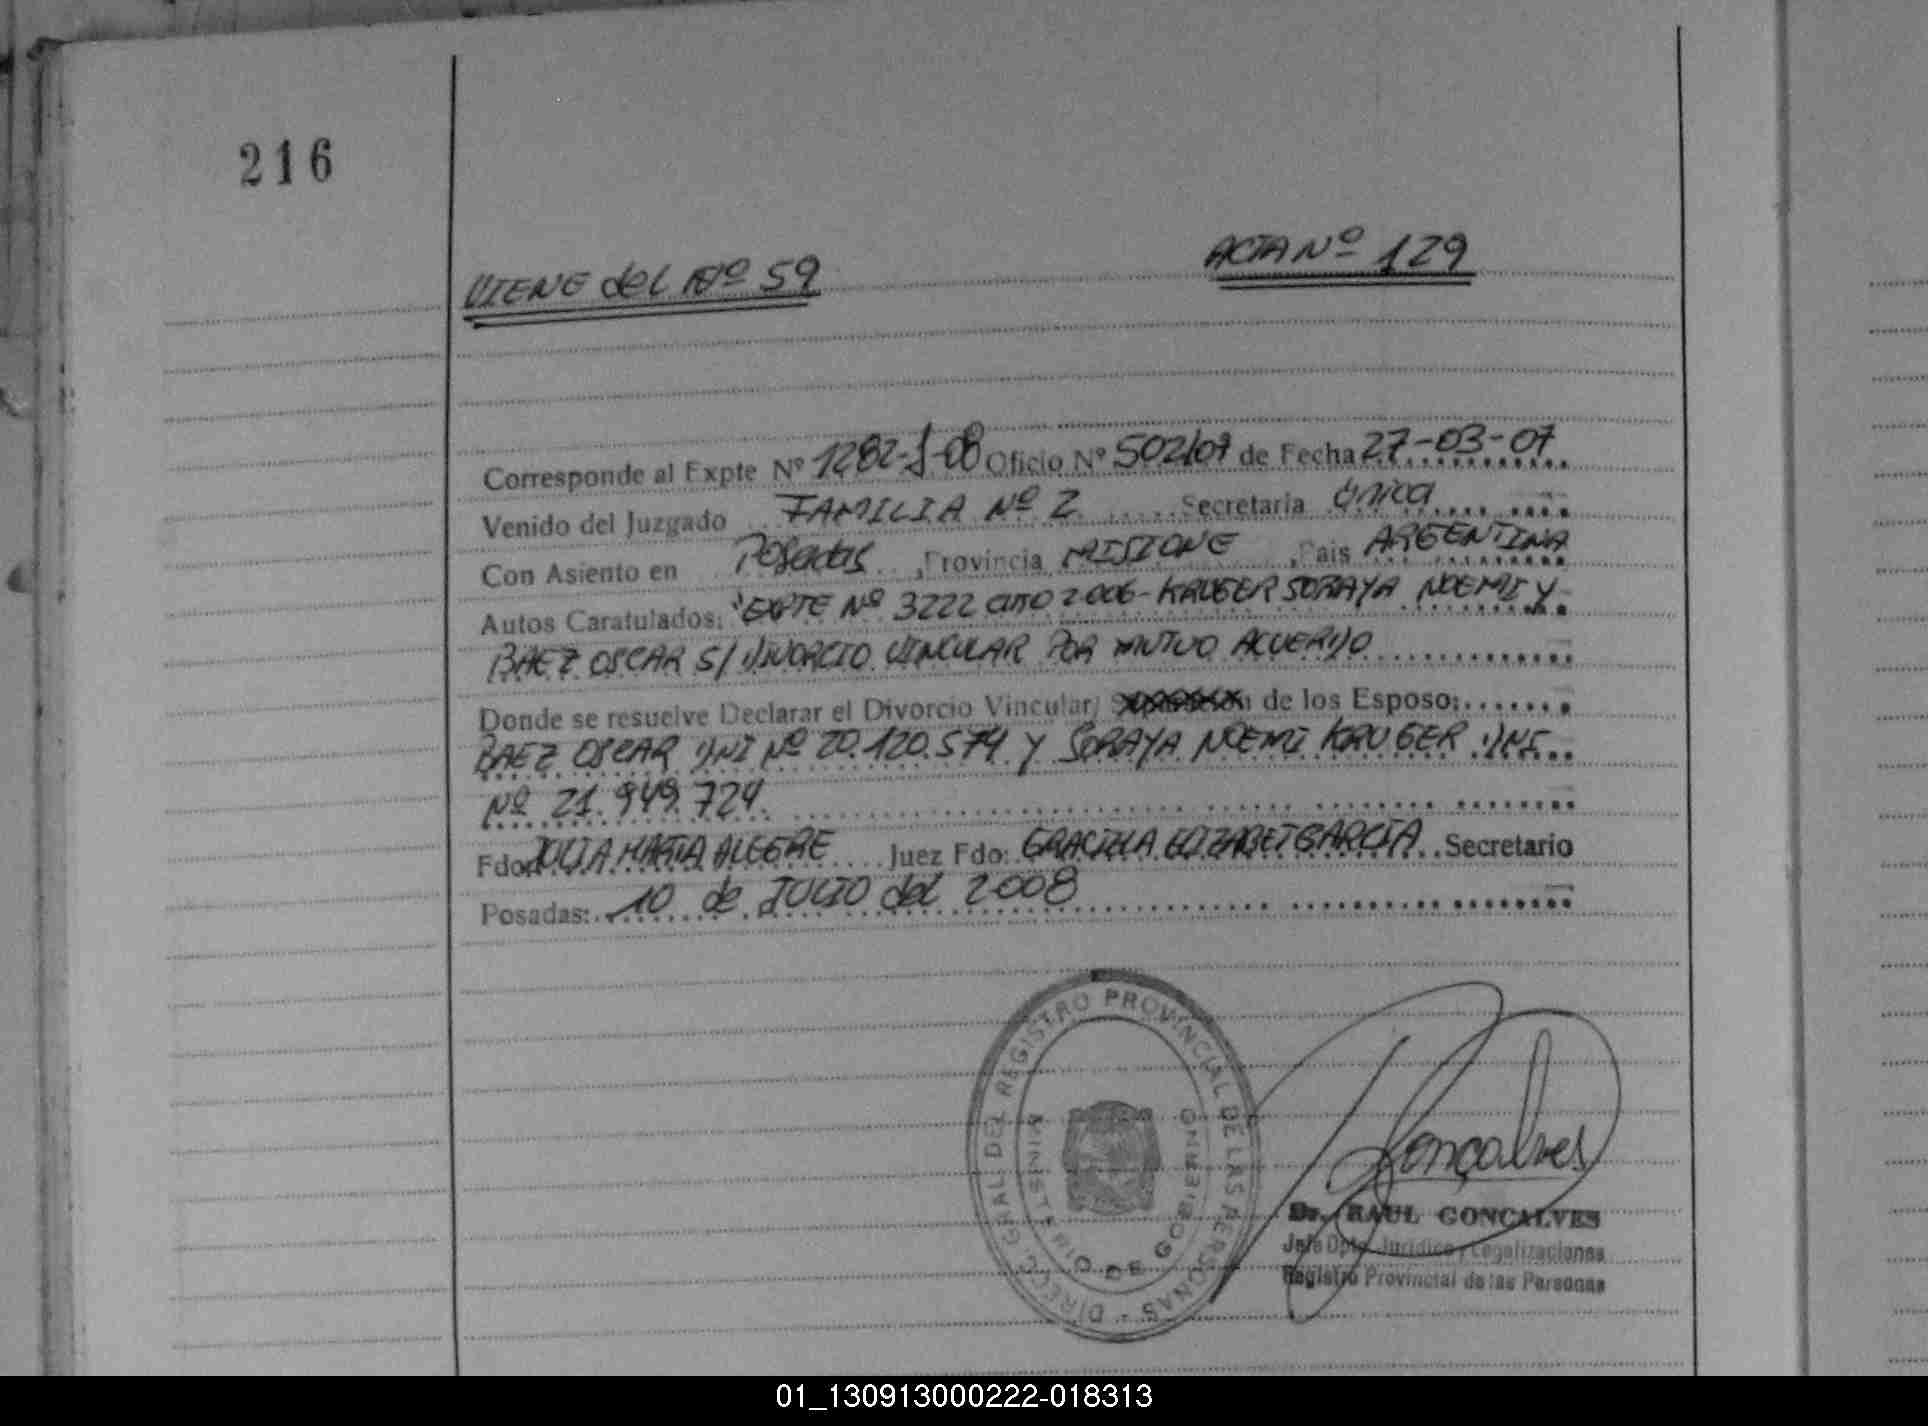 216
VIENE del Fº 59
ACTA Nº 129
Corresponde al Expte Nº 1282-J-08 Oficio Nº 502/07 de Fecha 27-03-07
Venido del Juzgado FAMILIA Nº 2 Secretaria única
Con Asiento en Posadas, Provincia MISIONE, Pais ARGENTINA
Autos Caratulados: "EXPTE Nº 3222 año 2006- KRUGER SORAYA NOEMI Y
BAEZ OSCAR S/ DIVORCIO VINCULAR POR MUTUO ACUERDO
Donde se resuelve Declarar el Divorcio Vincular, de los Esposo:
BAEZ OSCAR DNI Nº 20.120.574 Y SORAYA NOEMI KRUGER DNI
Nº 21.949.724.
Fdo: JULIA MARTA ALEGRE Juez Fdo: GRACIELA ELIZABET GARCIA Secretario
Posadas: 10 de JULIO del 2008
DIRECC. GRAL. DEL REGISTRO PROVINCIAL DE LAS PERSONAS -
MINISTERIO DE GOBIERNO
Gonçalves
Dr. RAUL GONÇALVES
Jefe Dpto. Jurídico y Legalizaciones
Registro Provincial de las Personas
01_130913000222-018313